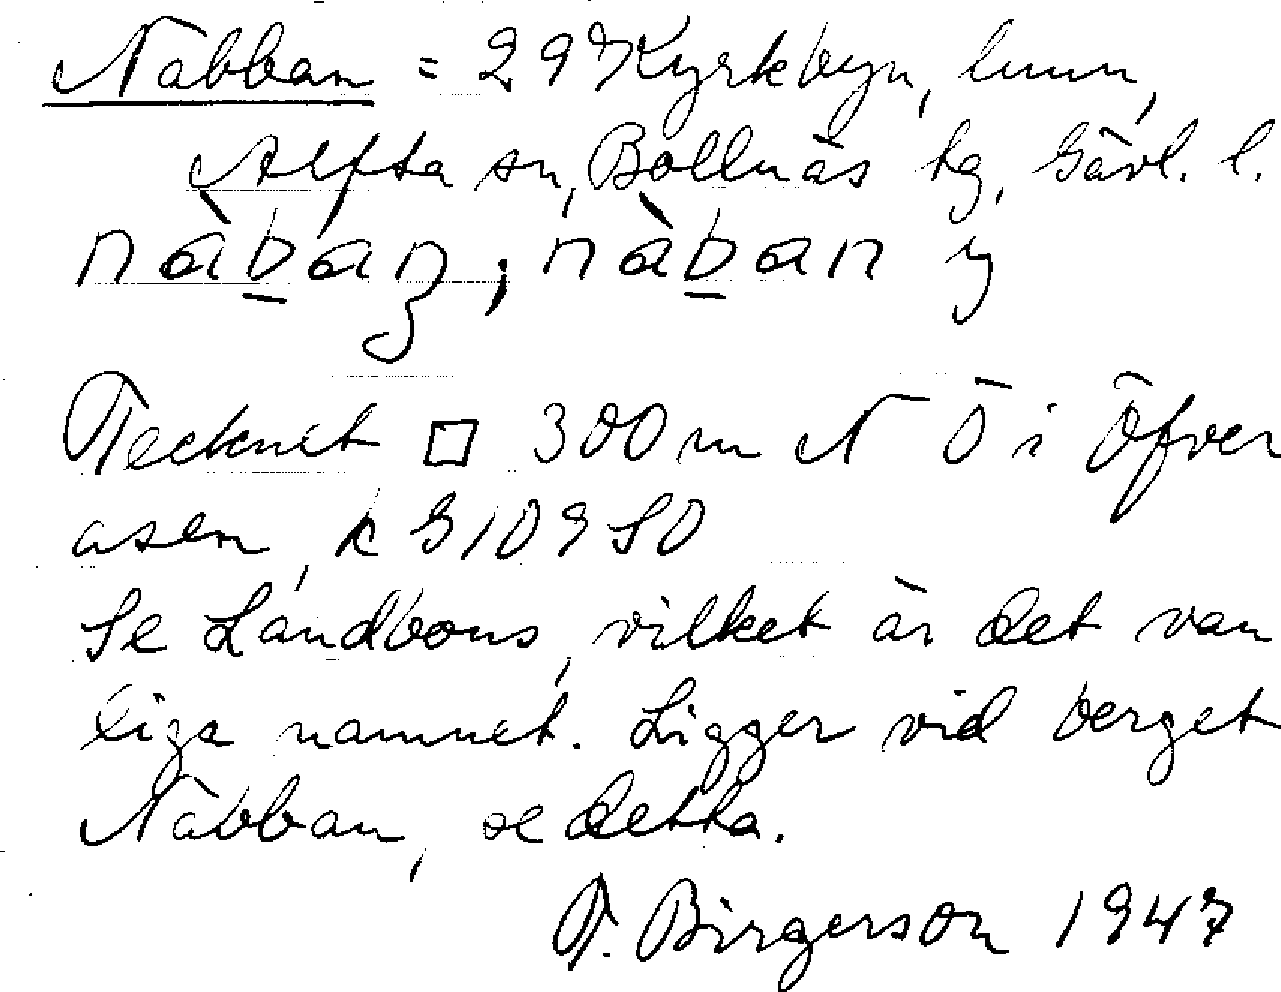 Nabban = 297 Kyrkbyn, hmn,
Alfta sn, Bollnäs tg, Gävl. l.
nàbaṇ, nàban y
Tecknet □ 300 m N Ö i Öfver
åsen, k G 109 SO
Se Landbons, vilket är det van
liga namnet. Ligger vid berget
Nabban, se detta.
T. Birgerson 1947